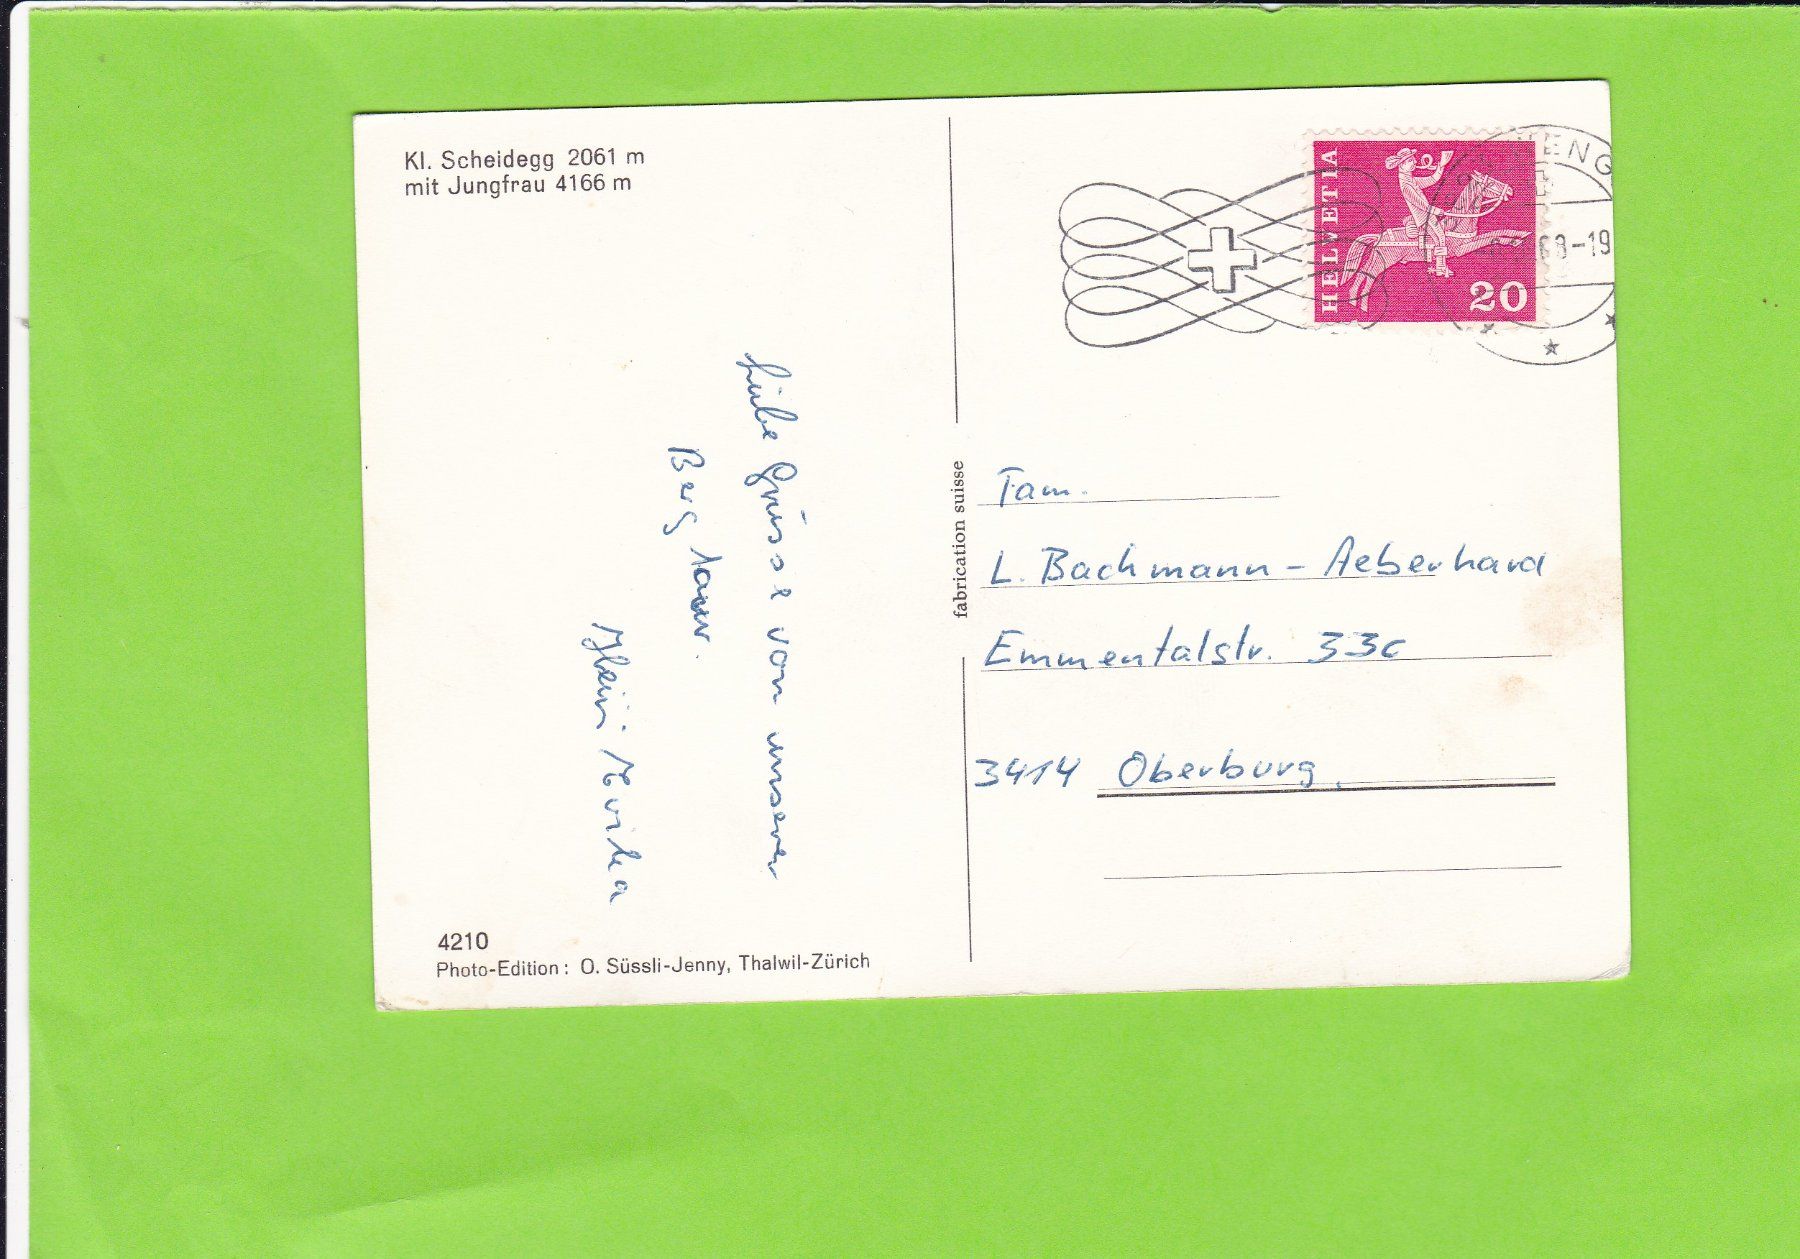 Kl. Scheidegg 2061 m
mit Jungfrau 4166 m
HELVETIA
20
68-19
Liebe Grüsse von unserer
Berg tour.
Heini + Erika
fabrication suisse
Fam.
L. Bachmann - Aeberhard
Emmentalstr. 33c
3414 Oberburg.
4210
Photo-Edition: O. Süssli-Jenny, Thalwil-Zürich